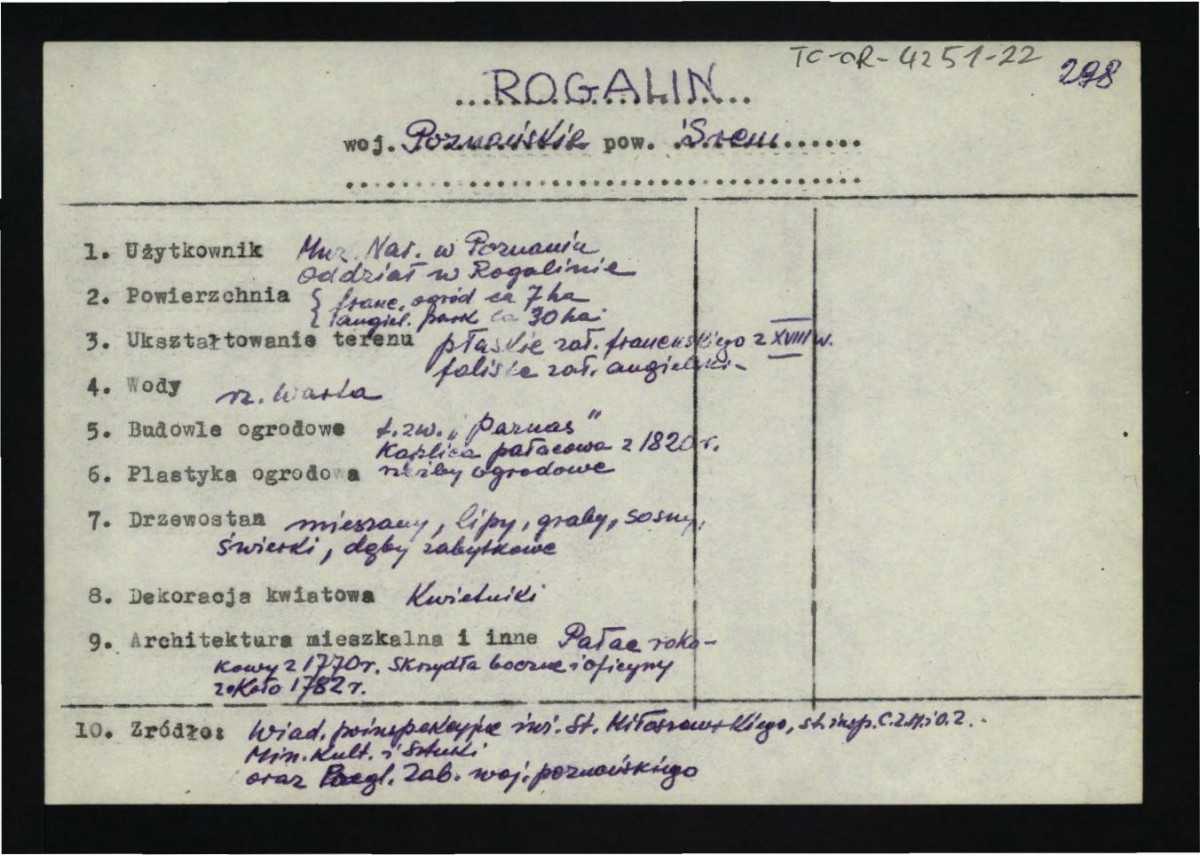 TC-OR-4251-22
298
...ROGALIN...
woj. Poznańskie pow. Śrem......
1. Użytkownik Muz. Nar. w Poznaniu
oddział w Rogalinie
2. Powierzchnia { franc. ogród ca 7 ha
angiel. park ca 30 ha
3. Ukształtowanie terenu płaskie zał. francuskiego z XVIII w.
faliste zał. angielski-
4. Wody rz. Warta
5. Budowle ogrodowe t.zw. "Parnas"
Kaplica pałacowa z 1820 r.
6. Plastyka ogrodowa rzeźby ogrodowe
7. Drzewostan mieszany, lipy, graby, sosny,
świerki, dęby zabytkowe
8. Dekoracja kwiatowa Kwietniki
9. Architektura mieszkalna i inne Pałac roko-
kowy z 1770 r. Skrzydła boczne i oficyny
około 1782 r.
10. Zródło: Wiad. poinspekcyjne inż. St. Miłoszewskiego, st. insp. C.Z.M.i O.Z.
Min. Kult. i Sztuki
oraz Zab. woj. poznańskiego